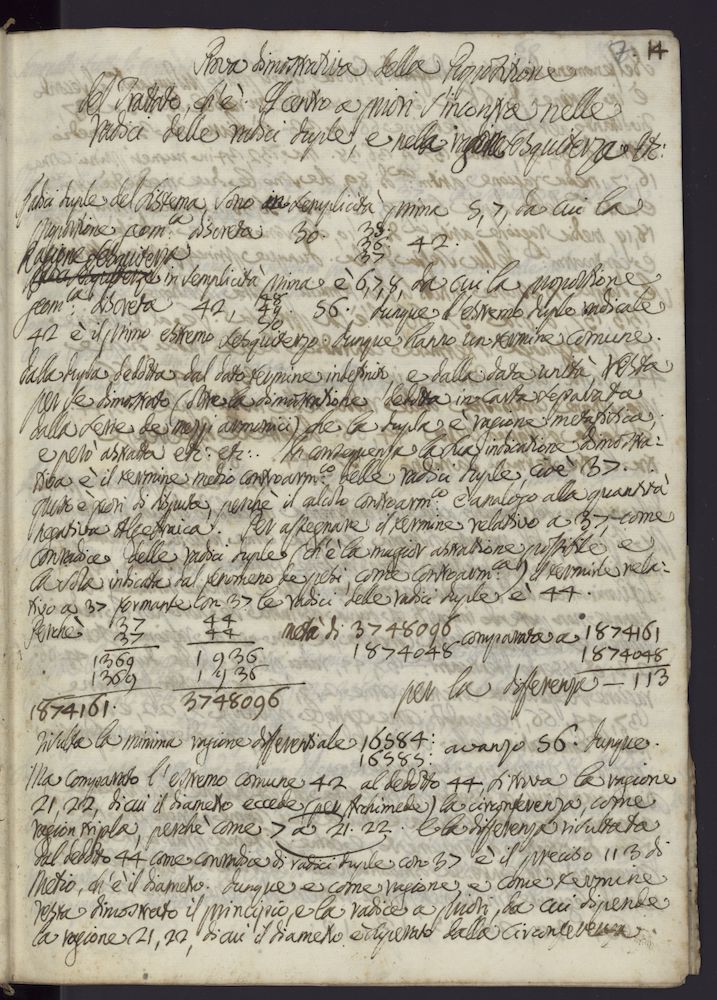 7. 14
Prova dimostrativa della Proposizione
del Trattato, ch'è. Il centro a priori s'incontra nelle
radici delle radici duple, e nella ragione sesquiterza etc:
Radici duple del Sistema sono in semplicità prima 5, 7, da cui la
proporzione geom:ca discreta 30. 35. 36. 37 42.
Ragione sesquiterza
in semplicità prima è 6, 7, 8, da cui la proporzione
geom:ca discreta 42, 48. 49. 50 56. Dunque l'estremo duple radicale
42 è il primo estremo sesquiterzo. Dunque hanno un termine comune.
Dalla dupla, dedotta dal dato termine infinito, e dalla data unità, resta
per se dimostrato (oltre la dimostrazione dedotta in carta separata
dalla serie de' mezzi armonici) che la dupla è ragione metafisica,
e però astratta etc: etc:. In conseguenza la sua indicazione dimostra-
tiva è il termine medio controarm:co delle radici duple, cioè 37.
Questo è fuori di disputa, perchè il calcolo controarm:co è analogo alla quantità
negativa Algebraica. Per assegnare il termine relativo a 37, come
conradice delle radici duple (ch'è la maggior astrazione possibile, e
la sola indicata dal fenomeno de pesi, come controarm:ca) il termine rela-
tivo a 37 formante con 37 le radici delle radici duple è 44.
Perchè 37 44 metà di 3748096 comparata a 1874161
37 44 1874048 1874048
1369 1936 per la differenza — 113
1369 1936
1874161. 3748096
risulta la minima ragione differenziale 16584: 16585: avanzo 56. Dunque.
Ma comparato l'estremo comune 42 al dedotto 44, si trova la ragione
21, 22, di cui il diametro eccede (per Archimede) la circonferenza, come
ragion tripla, perchè come 7 a 21. 22. E la differenza risultata
dal dedotto 44 come conradice di radici duple con 37 è il preciso 113 di
Mezio, ch'è il diametro. Dunque e come ragione, e come termine
resta dimostrato il principio, e la radice a priori, da cui dipende
la ragione 21, 22, di cui il diametro è superato dalla Circonferenza.